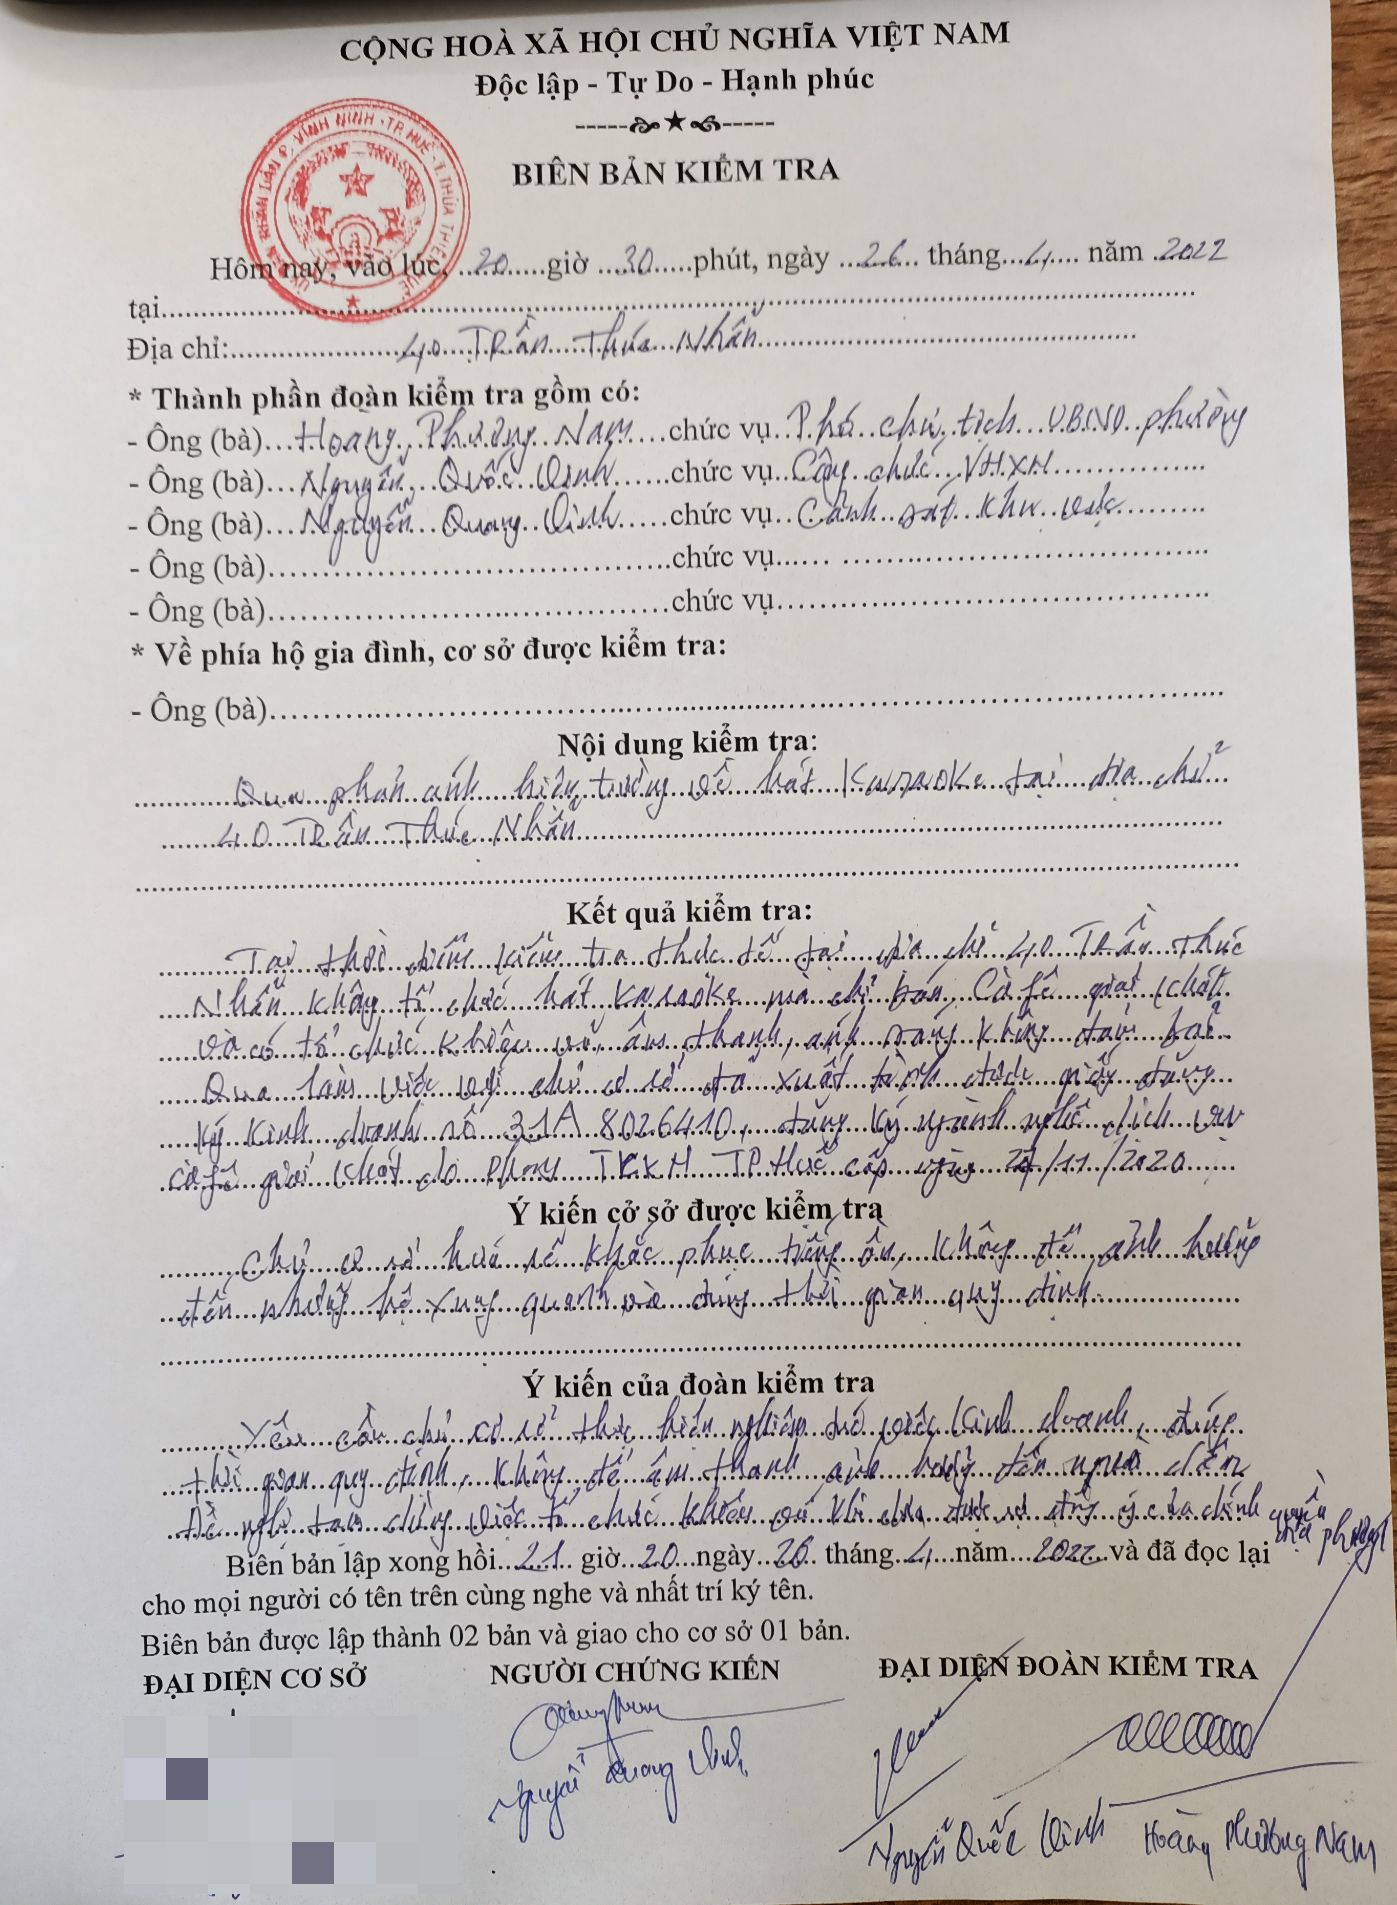 CỘNG HOÀ XÃ HỘI CHỦ NGHĨA VIỆT NAM
Độc lập - Tự Do - Hạnh phúc
BIÊN BẢN KIỂM TRA
Hôm nay, vào lúc, 20 giờ 30 phút, ngày 26 tháng 4 năm 2022
tại
Địa chỉ: 40 Trần Thúc Nhẫn
* Thành phần đoàn kiểm tra gồm có:
- Ông (bà) Hoàng Phương Nam chức vụ Phó chủ tịch UBND phường
- Ông (bà) Nguyễn Quốc chức vụ Công chức VHXH
- Ông (bà) Nguyễn Quang chức vụ Cảnh sát khu vực
- Ông (bà) chức vụ
- Ông (bà) chức vụ
* Về phía hộ gia đình, cơ sở được kiểm tra:
- Ông (bà)
Nội dung kiểm tra:
Qua phản ánh hiện tượng về hát Karaoke tại địa chỉ
40 Trần Thúc Nhẫn
Kết quả kiểm tra:
Tại thời điểm kiểm tra thực tế tại địa chỉ 40 Trần Thúc
Nhẫn không tổ chức hát Karaoke mà chỉ bán Cà fê giải khát
và có tổ chức khiêu vũ, âm thanh, ánh sáng không đảm bảo
Qua làm việc với chủ cơ sở đã xuất trình được giấy đăng
ký kinh doanh số 31A 8026410, đăng ký ngành nghề dịch vụ
cà fê giải khát do phòng TCKH TP Huế cấp ngày 27/11/2020
Ý kiến cở sở được kiểm tra
Chủ cơ sở hứa sẽ khắc phục tiếng ồn, không để ảnh hưởng
đến những hộ xung quanh và đúng thời gian quy định
Ý kiến của đoàn kiểm tra
Yêu cầu chủ cơ sở thực hiện nghiêm túc việc kinh doanh, đúng
thời gian quy định, không để âm thanh ảnh hưởng đến người dân
Đề nghị tạm dừng việc tổ chức khiêu vũ khi chưa được sự đồng ý của chính quyền
địa phương
Biên bản lập xong hồi 21 giờ 20 ngày 26 tháng 4 năm 2022 và đã đọc lại
cho mọi người có tên trên cùng nghe và nhất trí ký tên.
Biên bản được lập thành 02 bản và giao cho cơ sở 01 bản.
ĐẠI DIỆN CƠ SỞ NGƯỜI CHỨNG KIẾN ĐẠI DIỆN ĐOÀN KIỂM TRA
Nguyễn Quang
Nguyễn Quốc Hoàng Phương Nam